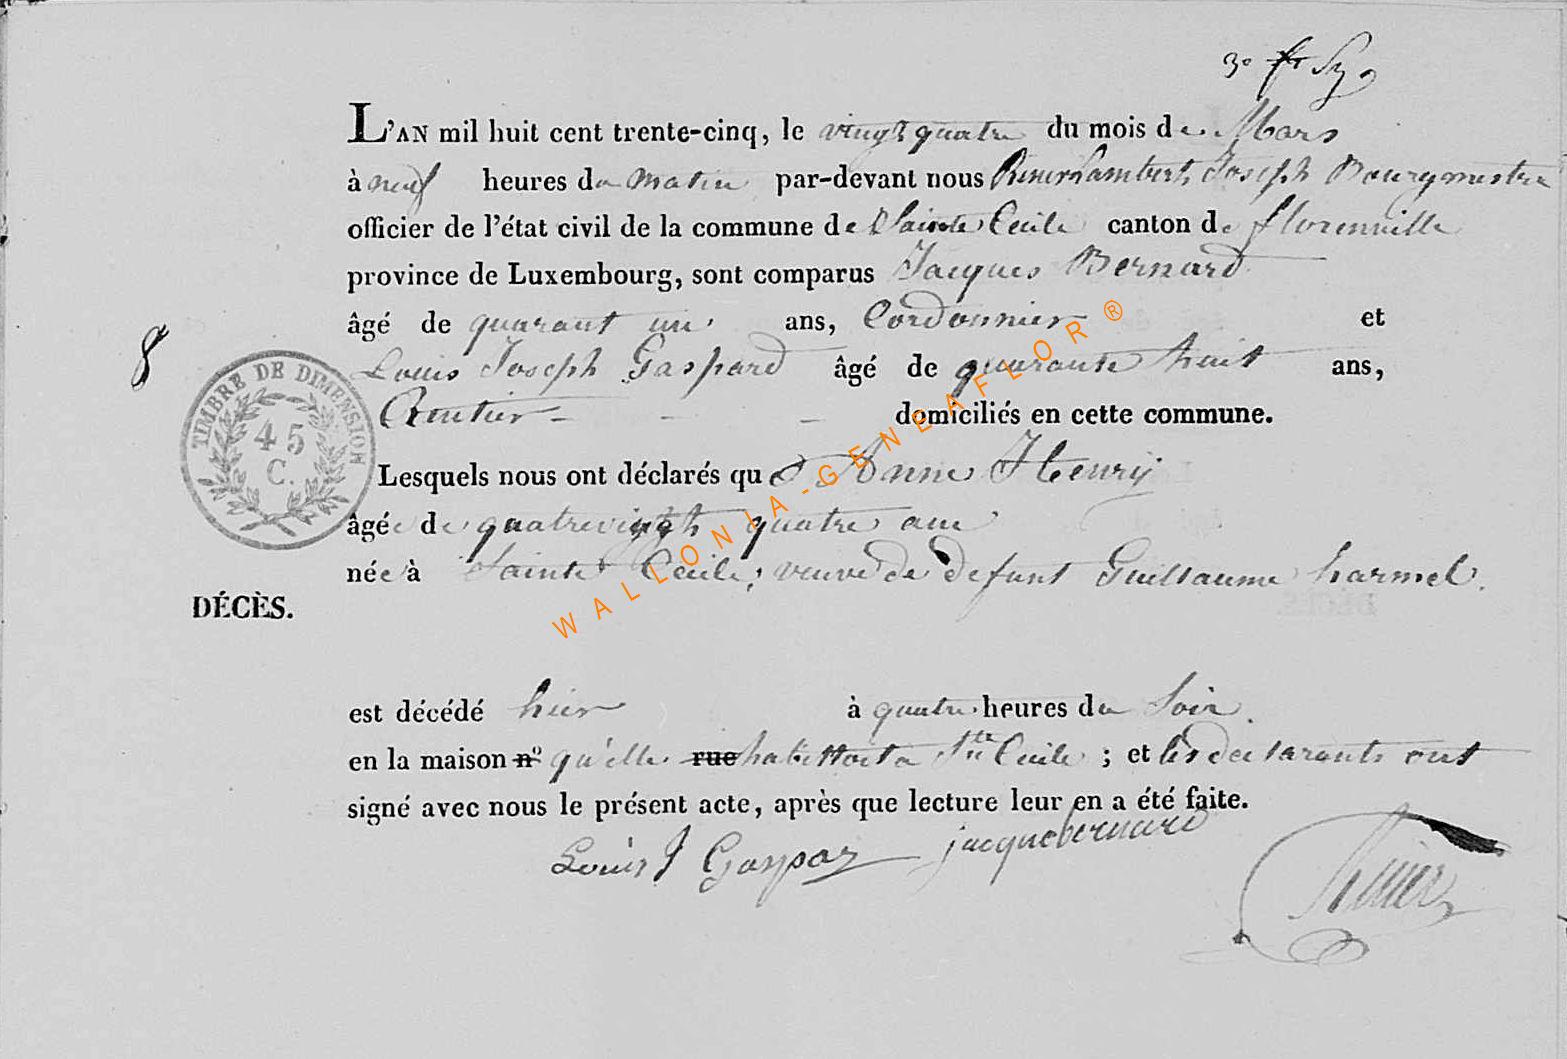 3e
L'AN mil huit cent trente-cinq, le vingt quatre du mois de Mars
à neuf heures du matin par-devant nous Lambert Joseph Bourgmestre
officier de l'état civil de la commune de Sainte Cecile canton de florenville
province de Luxembourg, sont comparus Jacques Bernard
âgé de quarant un ans, Cordonnier et
Louis Joseph Gaspard âgé de quarante huit ans,
8
Rentier domiciliés en cette commune.
TIMBRE DE DIMENSION
45
C.
Lesquels nous ont déclarés que Anne Henry
âgée de quatrevingt quatre ans
née à Sainte Cecile, veuve de defunt Guillaume harmel.
DÉCÈS.
est décédé hier à quatre heures du Soir.
en la maison n° qu'elle rue habittoit a Ste Cecile ; et les declarants ont
signé avec nous le présent acte, après que lecture leur en a été faite.
Louis J Gaspar jacque bernard
WALLONIA-GENEAFLOR®